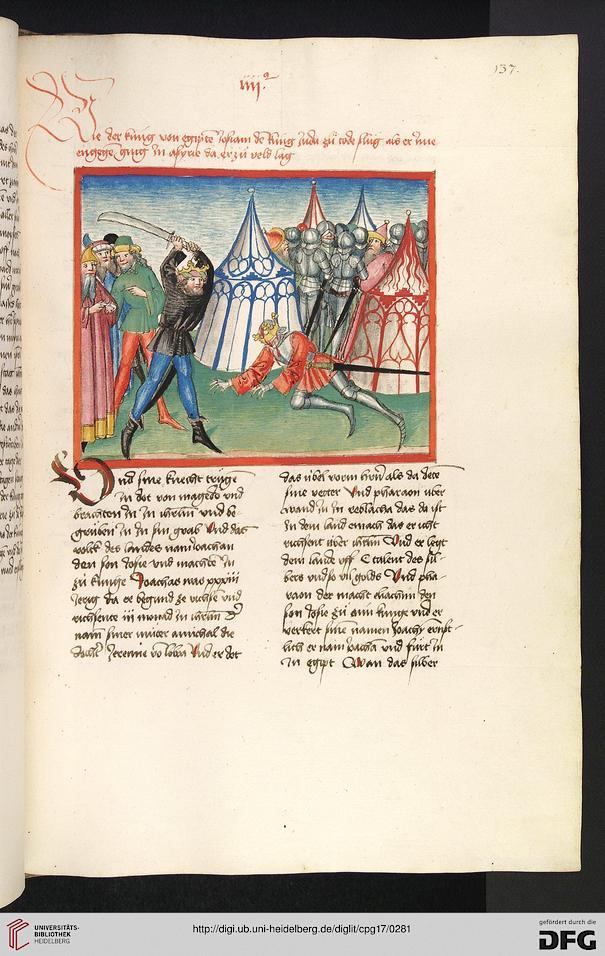 137.
iiij.a
Wie der kung von egipte Josiam de kung Juda zu tode slug als er ime
engege ging in asyrie da er zu veld lag
Vnd sine knecht truge
In dot von magedo vnd
brachten In In ihrlm vnd be-
gruben In In sin grab Vnd das
volck des landes nam Joachan
den son Josie vnd machte In
zu kunige Joachas was xxxiii
Jerig da er begund ze richse vnd
richsente iii monad zu ihrlm
nam siner muter amichal die
dochter Jeremie vo lobna Vnd er det
das ubel vorm hern als da dete
sine vetter Vnd pharaon uber
wand In In reblacha das da ist
In dem land emach das er icht
richsent uber ihrlm Vnd er legt
dem lande vff C talent des sil-
bers vnd so vil golds Vnd pha-
raon der macht eliachim den
son Josie zu aim kunge vnd er
verkert sine namen Joachy ernst-
lich er nam Joacha vnd furt In
In egipt Wan das silber
UNIVERSITÄTS-
BIBLIOTHEK
HEIDELBERG
http://digi.ub.uni-heidelberg.de/diglit/cpg17/0281
gefördert durch die
DFG